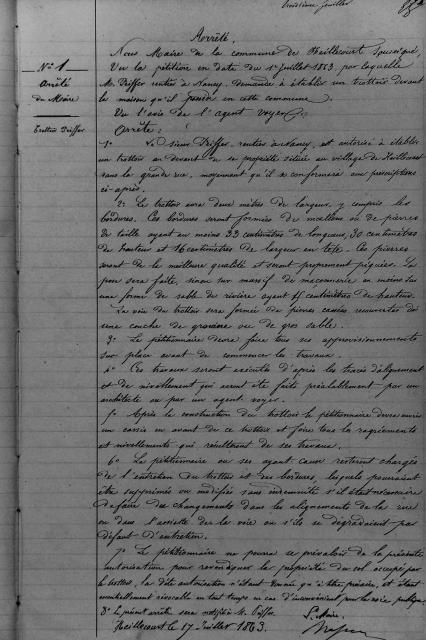 troisième feuillet
Arrêté.
N° 1
Arrêté
du Maire
Trottoir Driffer
Nous Maire de la commune de Heillecourt soussigné,
Vu la pétition en date du 1er Juillet 1863 par laquelle
M. Driffer rentier à Nancy, demande à établir un trottoir devant
la maison qu'il possède en cette commune.
Vu l'avis de l'agent voyer,
Arrête:
1° Le sieur Driffer, rentier à Nancy, est autorisé à établir
un trottoir au devant de sa propriété située au village de Heillecourt
dans la grande rue, moyennant qu'il se conformera aux prescriptions
ci-après.
2° Le trottoir aura deux mètres de largeur, y compris les
bordures. Ces bordures seront formées de moellons ou de pierres
de taille ayant au moins 33 centimètres de longueur, 30 centimètres
de hauteur et 16 centimètres de largeur en tête. Ces pierres
seront de la meilleure qualité et seront proprement piquées. La
pose sera faite, sinon sur massif de maçonnerie au moins sur
une forme de sable de rivière ayant 15 centimètres de hauteur.
La voie du trottoir sera formée de pierres cassées recouvertes d'
une couche de gravier ou de gros sable.
3° Le pétitionnaire devra faire tous ses approvisionnements
sur place avant de commencer les travaux.
4° Ces travaux seront exécutés d'après les tracés d'alignement
et de nivellement qui auront été faits préalablement par un
architecte ou par un agent voyer.
5° Après la construction du trottoir le pétitionnaire devra ouvrir
un cassis en avant de ce trottoir et faire tous les ragréements
et nivellements qui résulteront de ses travaux.
6° Le pétitionnaire ou ses ayant cause resteront chargés
de l'entretien du trottoir et des bordures, lesquels pourraient
être supprimés ou modifiés sans indemnité s'il était nécessaire
de faire des changements dans les alignements de la rue
ou dans l'assiette de la voie ou s'ils se dégradaient par
défaut d'entretien.
7° Le pétitionnaire ne pourra se prévaloir de la présente
autorisation pour revendiquer la propriété du sol occupé par
le trottoir, la dite autorisation n'étant donnée qu'à titre précaire, et étant
essentiellement révocable en tout temps en cas d'inconvénient pour la voie publique.
8° Le présent arrêté sera notifié à M. Driffer.
Heillecourt le 17 Juillet 1863.
Le Maire,